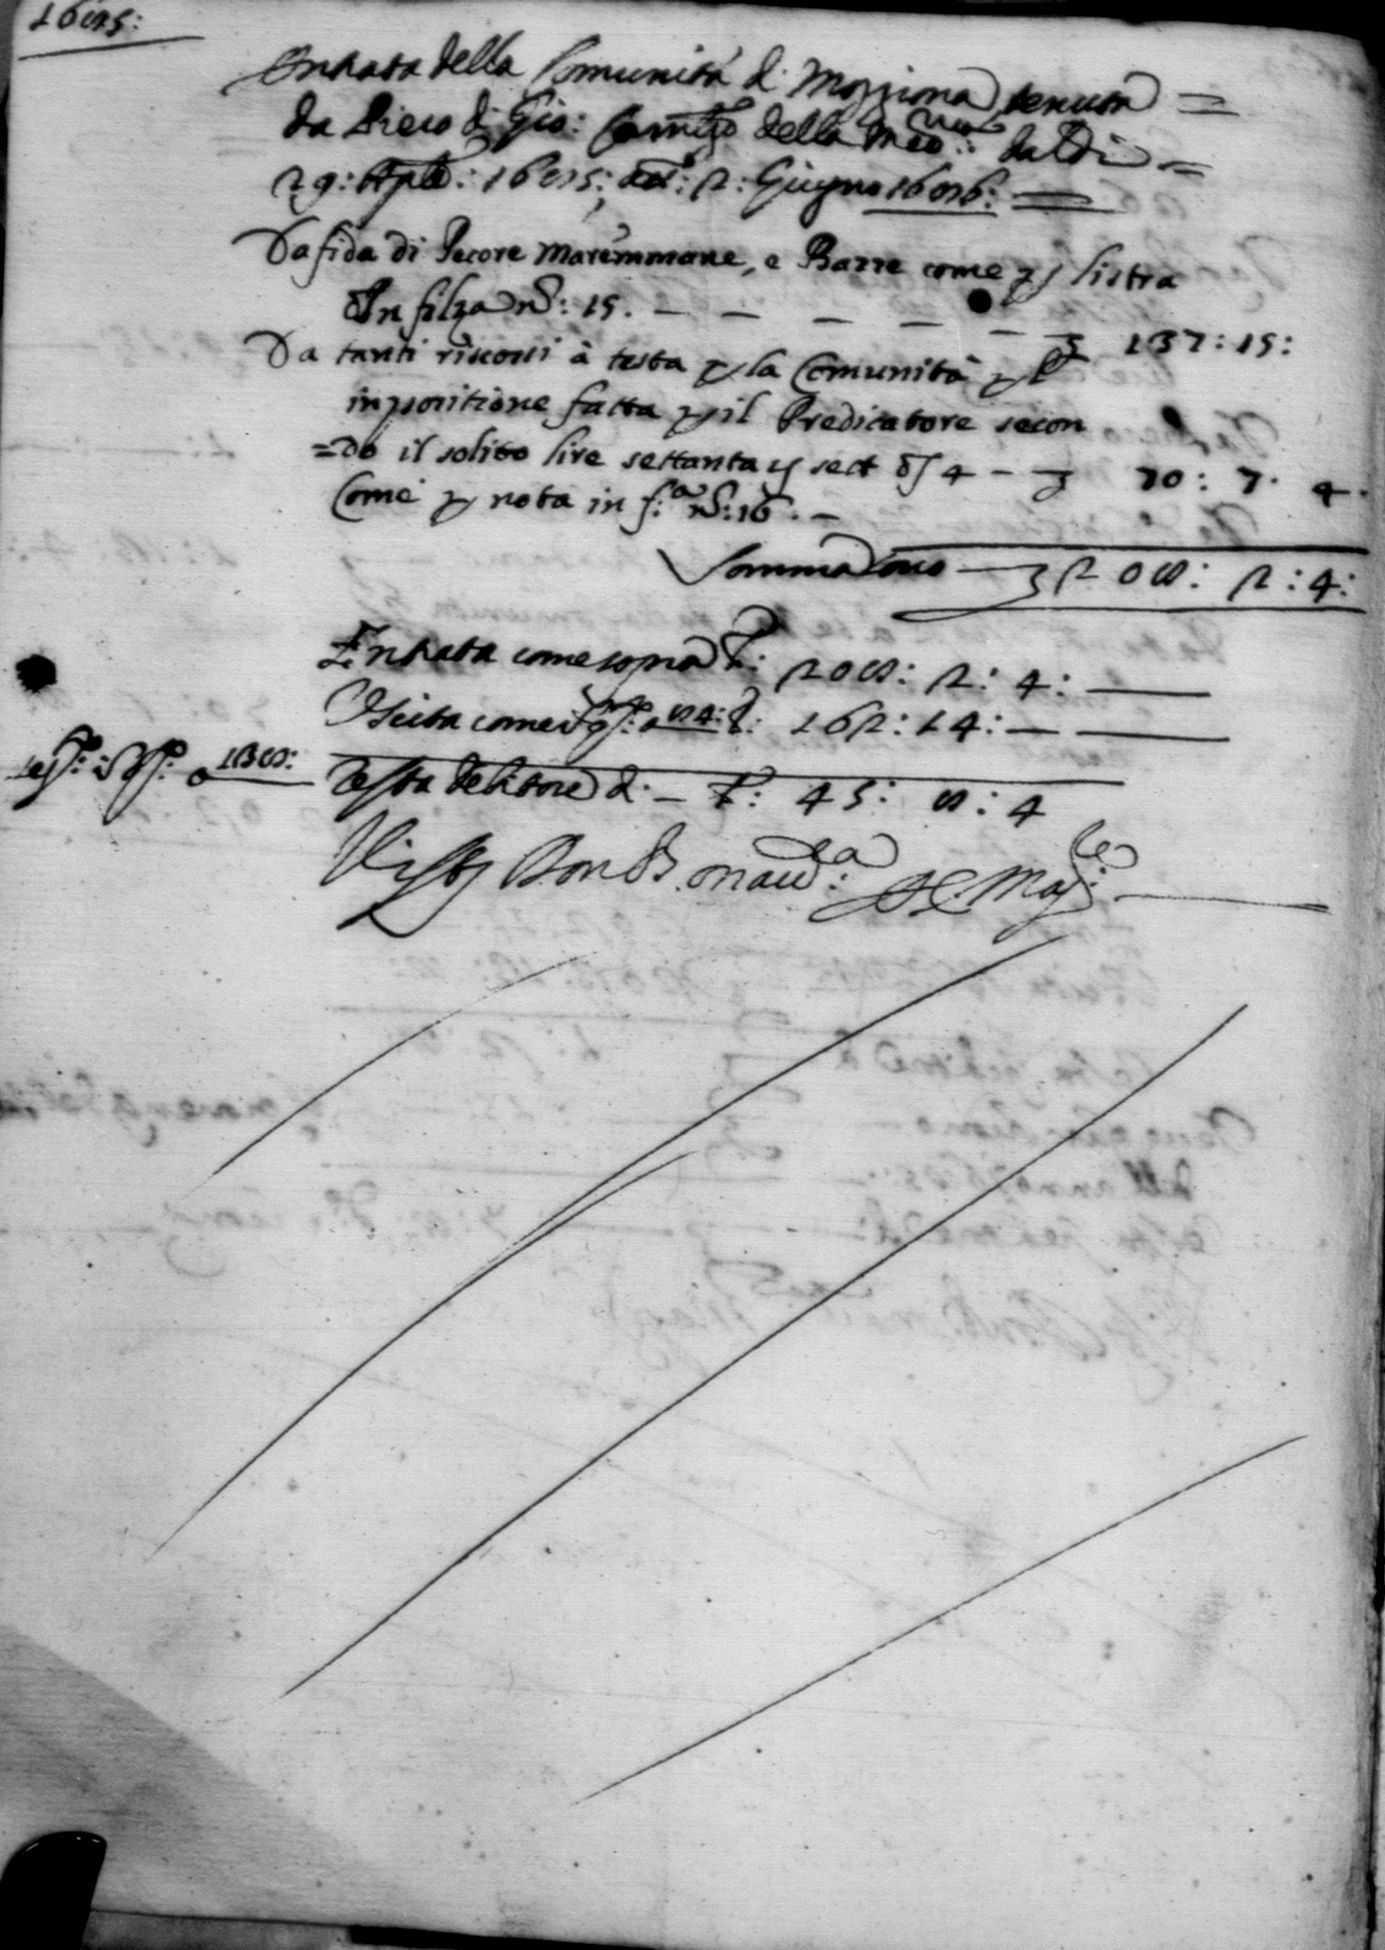 1685:
Entrata della Comunità di Moggiona tenuta =
da Piero di Gio: Camᵍᵒ della Mᵉᵈ: dal dì =
29: Aple: 1685: al: 2: Giugno 1686: =
Da fida di Pecore maremmane, e Bazze come p lista
In filza nº: 15. — — — — — — 137: 15:
Da tanti riscossi à testa p la Comunità p l'
inpositione fatta p il Predicatore secon
=do il solito lire settanta s sett d 4 — 70: 7. 4.
Come p nota in f.ª nº: 16. —
Sommano — 208: 2: 4:
Entrata come sopra L: 208: 2: 4: —
Uscita come in qº: a 84: L: 162: 14: — —
a 138:
Resta debitore di — L: 45: 8: 4
Visto